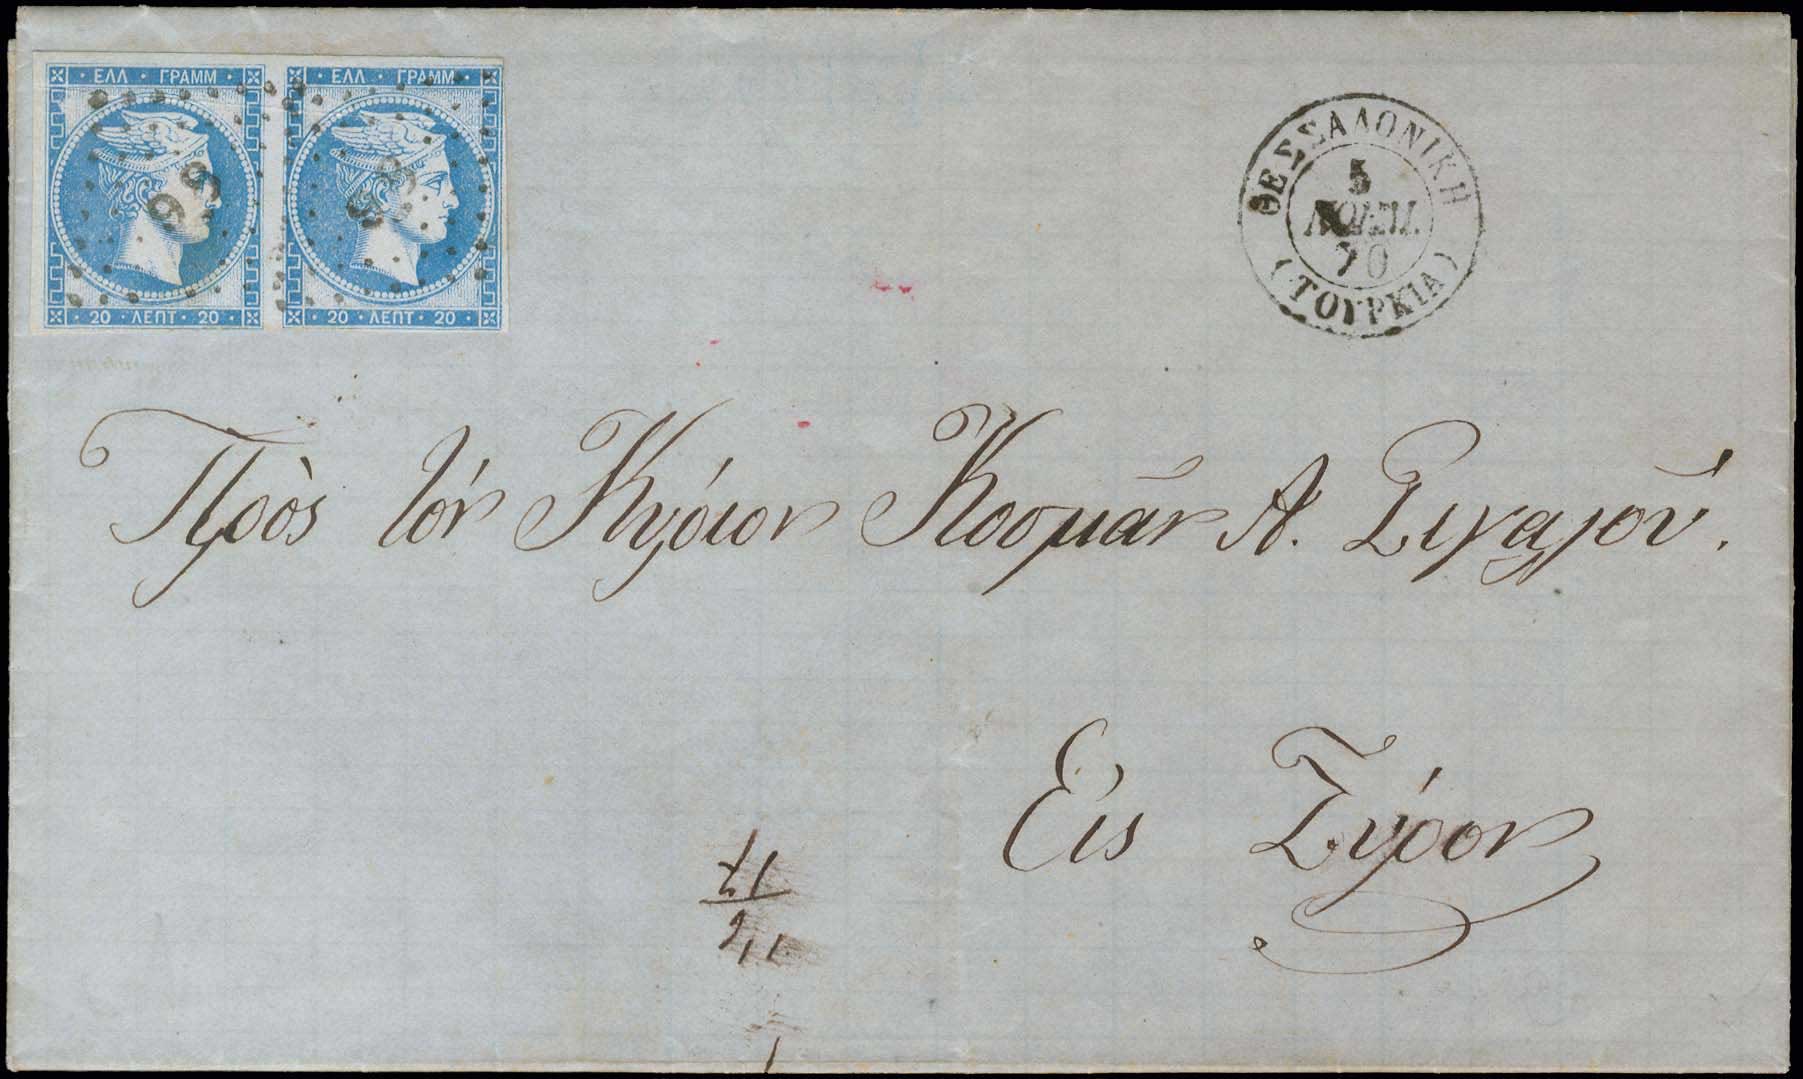 ΕΛΛ · ΓΡΑΜΜ ·
20 · ΛΕΠΤ · 20
ΕΛΛ · ΓΡΑΜΜ ·
20 · ΛΕΠΤ · 20
99
ΘΕΣΣΑΛΟΝΙΚΗ
5
ΝΟΕΜ.
70
(ΤΟΥΡΚΙΑ)
Πρὸς τὸν Κύριον Κοσμᾶν Α. Σιγαλοῦ.
Εις Σύρον